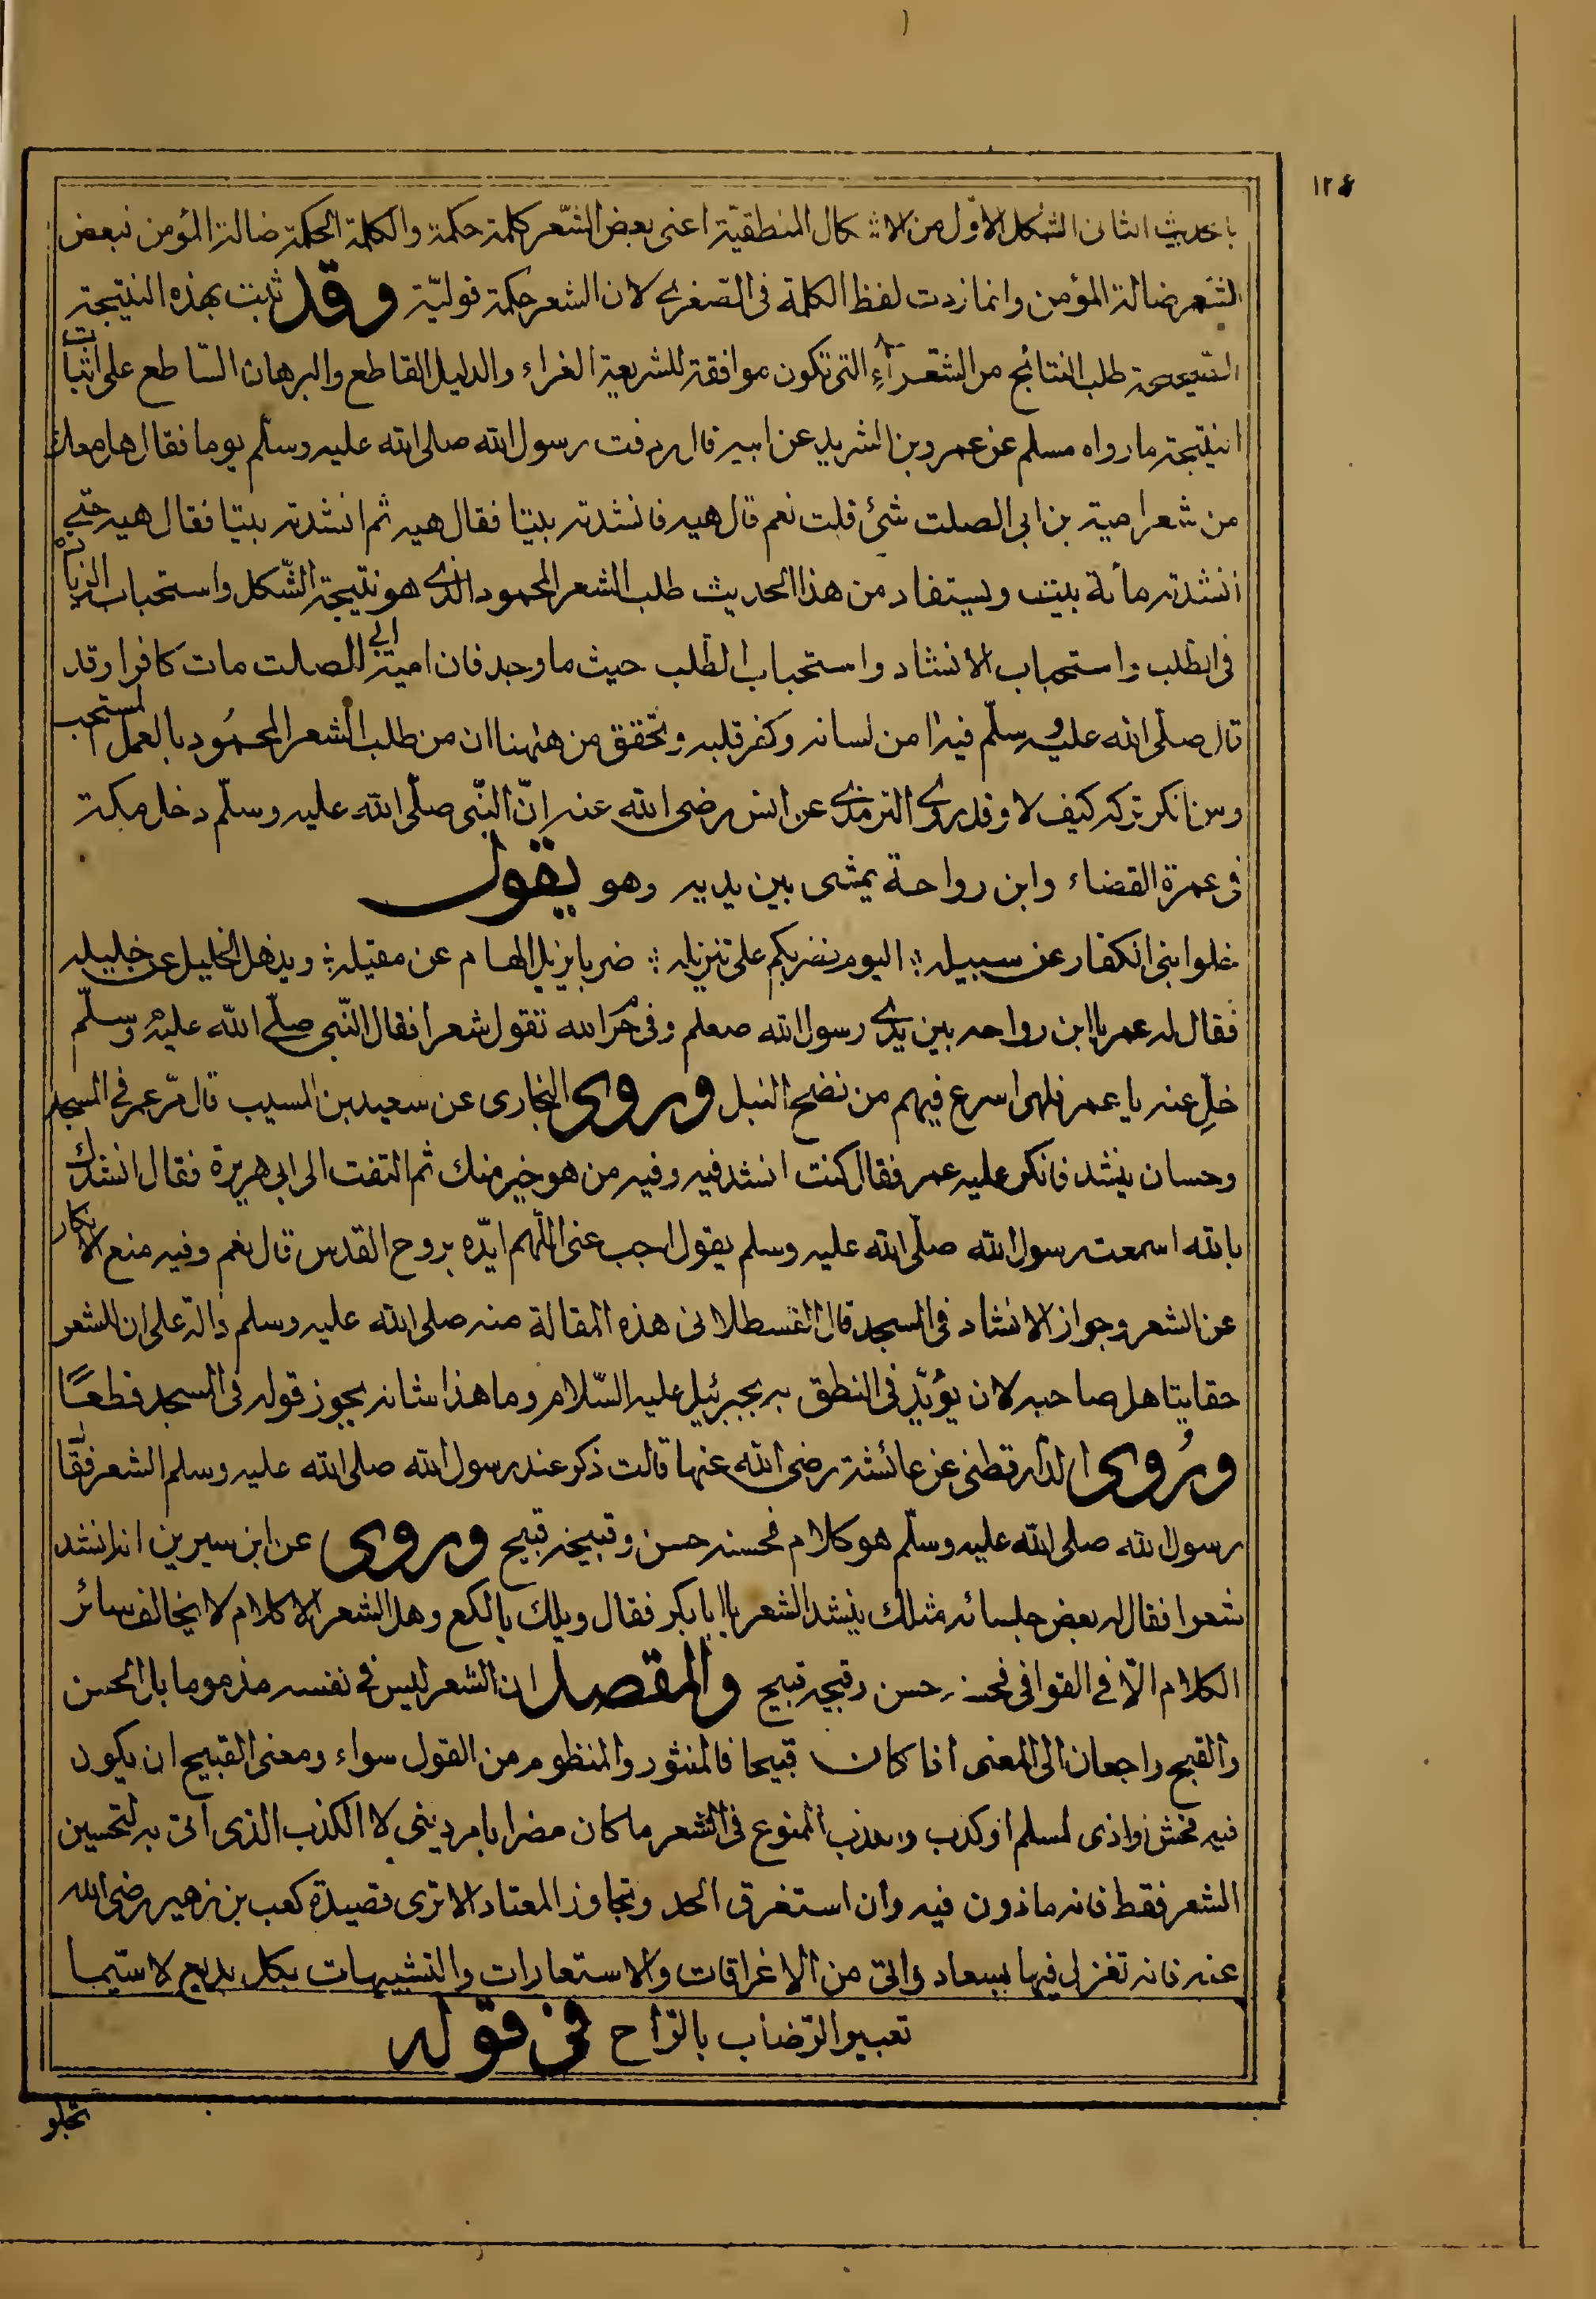 ١٢٤
بالحديث الثانى الشكل الاوّل من الاشكال المنطقيّة اعنى بعض الشّعر كلمة حكمة والكلمة الحكمة ضالة المؤمن فبعض
الشعر ضالة المؤمن وانما زدت لفظ الكلمة فى الصغرى لان الشعر حكمة قوليّة وقد ثبت بهذه النتيجة
الصحيحة طلب النتائج من الشعراء التى تكون موافقة للشريعة الغراء والدليل القاطع والبرهان السّاطع على اثبات
النتيجة ما رواه مسلم عن عمرو بن الشريد عن ابيه قال ردفت رسول الله صلى الله عليه وسلّم يوما فقال هل معك
من شعر امية بن ابى الصلت شئ قلت نعم قال هيه فانشدته بيتا فقال هيه ثم انشدته بيتا فقال هيه حتى
انشدته مأية بيت ويستفاد من هذا الحديث طلب الشعر المحمود الذى هو نتيجة الشّكل واستحباب الزيادة
فى الطلب واستحباب الانشاد واستحباب الطلب حيث ما وجد فان امية ابى الصلت مات كافرا وقد
قال صلّى الله عليه وسلّم فيه امن لسانه وكفر قلبه وتحقق من ههنا ان من طلب الشعر المحمُود بالعمل المستحب
ومن انكر تركه كيف لا وقد روى الترمذى عن انس رضى الله عنه انّ النّبى صلّى الله عليه وسلّم دخل مكة
فى عمرة القضاء وابن رواحة يمشى بين يديه وهو يقول
خلوا بنى الكفار عن سبيله ؞ اليوم نضربكم على تنزيله ؞ ضربا يزيل الهام عن مقيله ؞ ويذهل الخليل عن خليله
فقال له عمر يا ابن رواحه بين يدى رسول الله صعلم وفى حرم الله تقول شعرا فقال النّبى صلّى الله عليه وسلّم
خلِّ عنه يا عمر فلهى اسرع فيهم من نضح النبل وروى البخارى عن سعيد بن المسيب قال مرّ عمر فى المسجد
وحسان ينشد فانكر عليه عمر فقال كنت انشد فيه وفيه من هو خير منك ثم التفت الى ابى هريرة فقال انشدك
بالله اسمعت رسول الله صلّى الله عليه وسلم يقول اجب عنى اللّهم ايّده بروح القدس قال نعم وفيه منع الانكار
عن الشعر وجواز الانشاد فى المسجد قال القسطلانى هذه المقالة منه صلى الله عليه وسلم دالة على ان للشعر
حقا يتاهل صاحبه لان يؤيّد فى النطق به بجبرئيل عليه السّلام وما هذا شانه يجوز قوله فى المسجد قطعًا
ورُوى الدارقطنى عن عائشة رضى الله عنها قالت ذكر عند رسول الله صلى الله عليه وسلم الشعر فقال
رسول الله صلى الله عليه وسلّم هو كلام فحسنه حسن وقبيحه قبيح وروى عن ابن سيرين انه انشد
شعرا فقال له بعض جلسائه مثلك ينشد الشعر يا ابا بكر فقال ويلك يا لكع وهل الشعر الا كلام لا يخالف سائر
الكلام الّا فى القوافى فحسنه حسن وقبيحه قبيح والمقصل ان الشعر ليس فى نفسه مذموما بل الحسن
والقبح راجعان الى المعنى اذا كان قبيحا فالمنثور والمنظوم من القول سواء ومعنى القبيح ان يكون
فيه فحش واذى لمسلم او كذب والكذب الممنوع فى الشعر ما كان مضرا بامر دينى لا الكذب الذى اتى به لتحسين
الشعر فقط فانه ماذون فيه وان استغرق الحد وتجاوز المعتاد الا ترى قصيدة كعب بن زهير رضى الله
عنه فانه تغزل فيها بسعاد واتى من الاغراقات والاستعارات والتشبيهات بكل بديع لا سيّما
تعبير الرّضاب بالرّاح فى قوله
تجلو